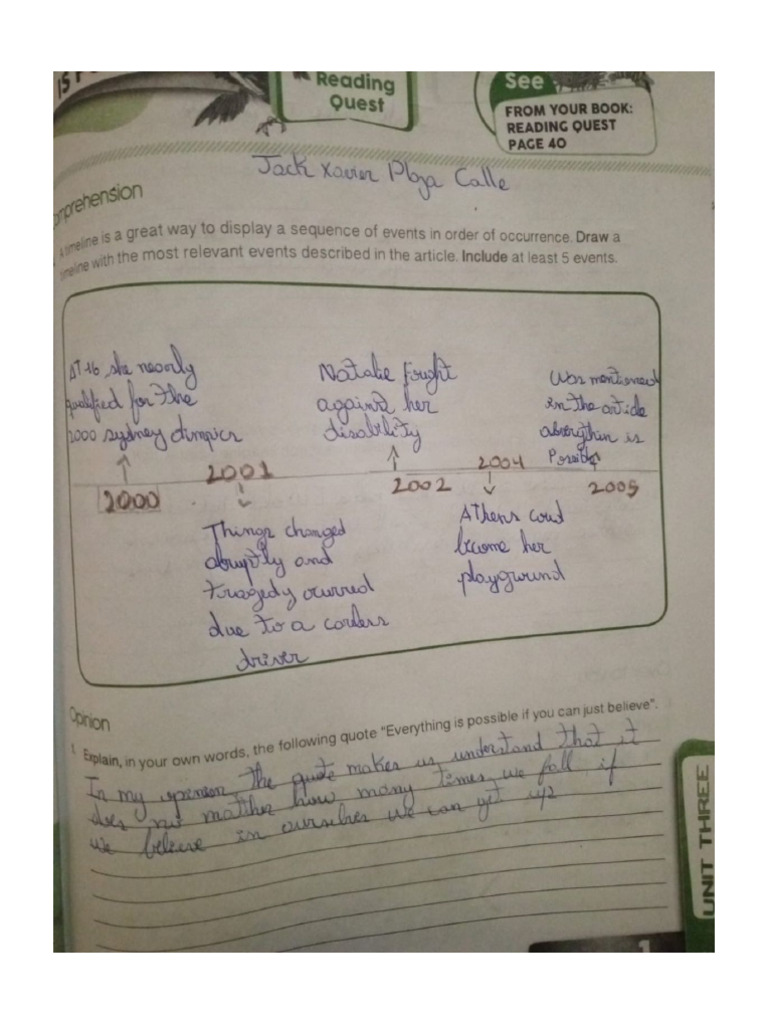 IS P
Reading
Quest
See
FROM YOUR BOOK:
READING QUEST
PAGE 40
Jack Xavier Plaza Calle
omprehension
A timeline is a great way to display a sequence of events in order of occurrence. Draw a
timeline with the most relevant events described in the article. Include at least 5 events.
AT 16, she nearly
qualified for the
2000 sydney olimpics
Natalie fought
against her
disability
Was mentioned
in the article
Possible
2000
2001
2002
2004
2005
Things changed
abruptly and
tragedy ocurred
due to a carless
driver
Athens coud
become her
playground
Opinion
1. Explain, in your own words, the following quote "Everything is possible if you can just believe".
In my openion the quote makes us understand that it
does not matther how many times we fall if
we beleive in ourselves we can get up
UNIT THREE
1